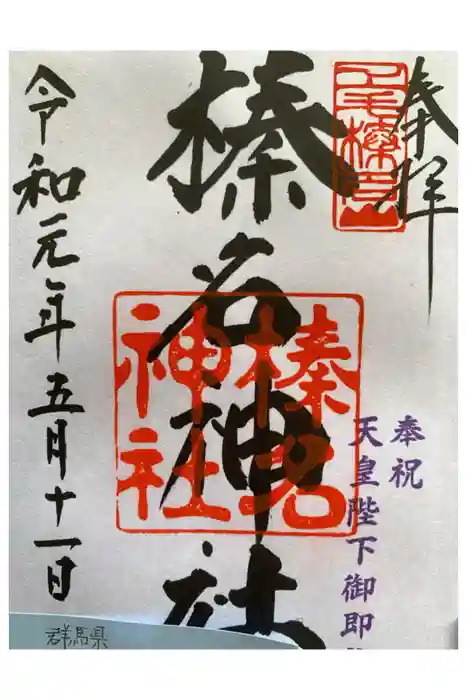 奉拝
上毛榛名山
榛名神社
榛名
神社
奉祝
天皇陛下御即
令和元年五月十一日
群馬県